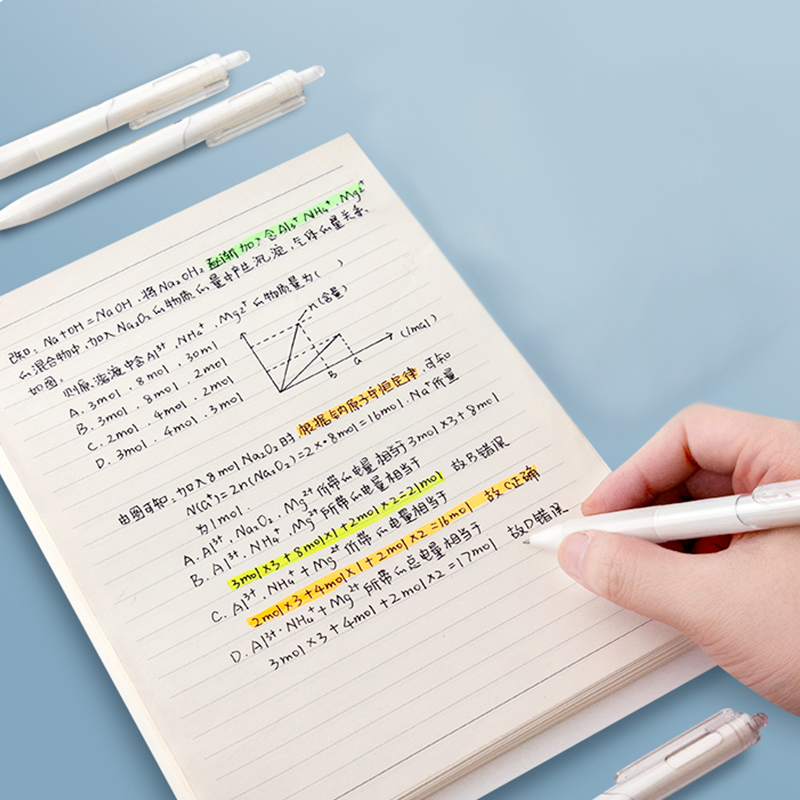 改知：Na+OH=NaOH.将Na₂OH₂逐渐加入含Al³⁺NH₄⁺.Mg²⁺
的混合物中.加入Na₂O₂的物质的量中产生沉淀.气体的量关系.
如图. 则原溶液中含Al³⁺.NH₄⁺.Mg²⁺的物物质量为( )
n(含量)
(mol)
B a
A.3mol.8mol.30ml
B.3mol.8mol.2mol
C.2mol.4mol.2mol
D.3mol.4mol.3mol
由图可知.加入8molNa₂O₂时 根据钠原子守恒定律.可知
N(a⁺)=2n(Na₂O₂)=2×8mol=16mol.Na⁺质量
为1mol.
A.Al³⁺.Na₂O₂.Mg²⁺所带的电量相当于3mol×3+8mol
B.Al³⁺.NH₄.Mg²⁺所带的电量相当于 故B错误
3mol×3+8mol×1+2mol×2=21mol
C.Al³⁺.NH₄⁺+Mg²⁺所带的电量相当于
2mol×3+4mol×1+2mol×2=16mol 故C正确
D.Al³⁺.NH₄⁺+Mg²⁺所带的总电量相当于 故D错误
3mol×3+4mol+2mol×2=17mol